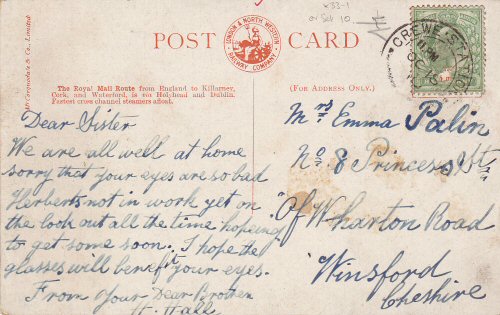 x33-1
or Sch 10
POST CARD
LONDON & NORTH WESTERN
RAILWAY COMPANY
CREWE STATION
McCorquodale & Co., Limited
The Royal Mail Route from England to Killarney,
Cork, and Waterford, is via Holyhead and Dublin.
Fastest cross channel steamers afloat.
(FOR ADDRESS ONLY.)
Dear Sister
We are all well at home
sorry that your eyes are so bad
Herberts not in work yet on
the look out all the time hopeing
to get some soon. I hope the
glasses will benefit your eyes.
From Your Dear Brother
H. Hall
Mrs Emma Palin
No 8 Princess St
Of Wharton Road
Winsford
Cheshire